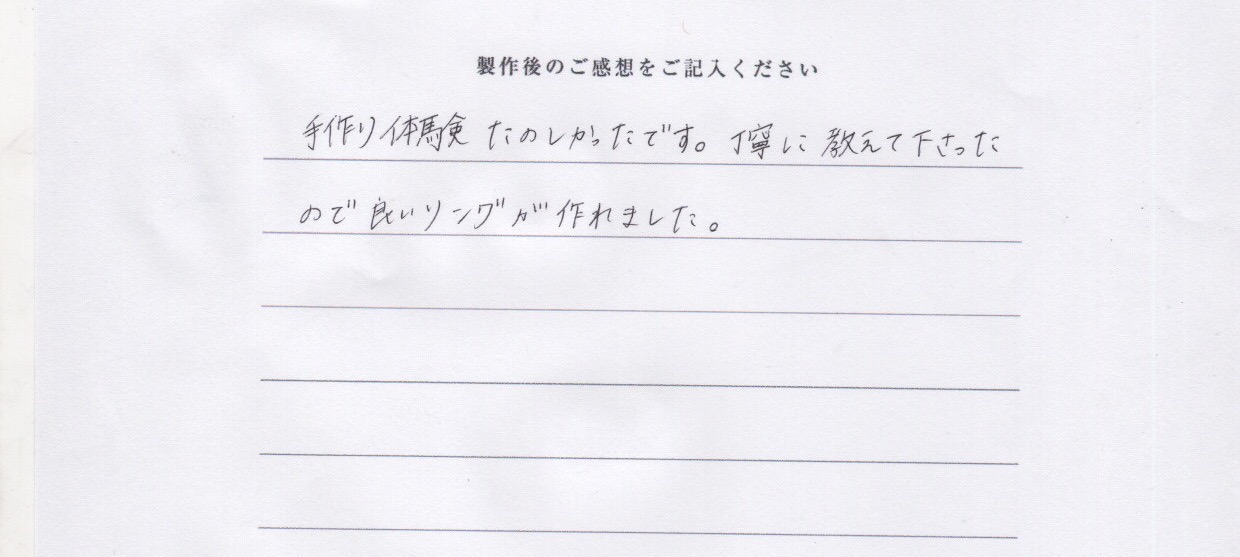 製作後のご感想をご記入ください
手作り体験たのしかったです。丁寧に教えて下さった
ので良いリングが作れました。